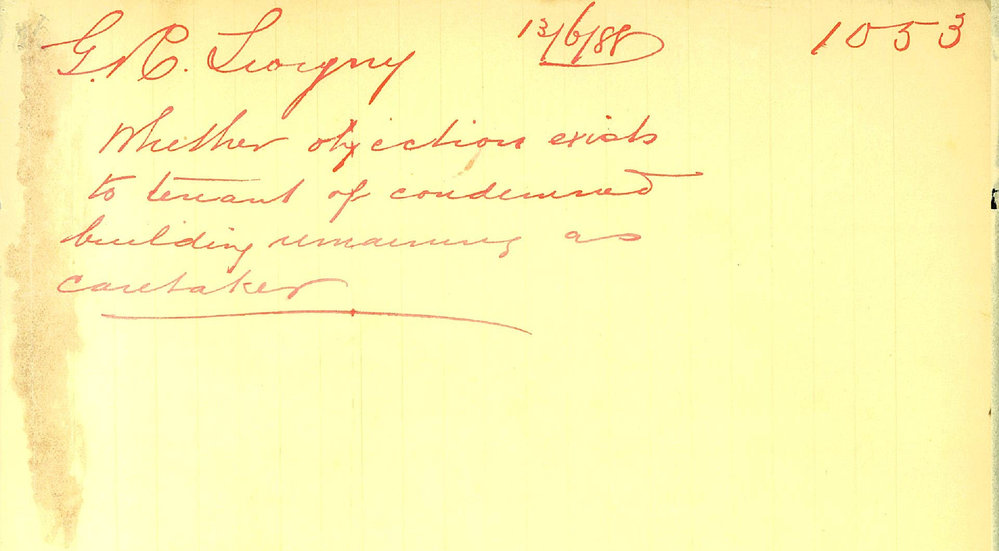 G. 13/6/88 1053
Whether objection exists
to tenant of condemned
building remaining as
caretaker